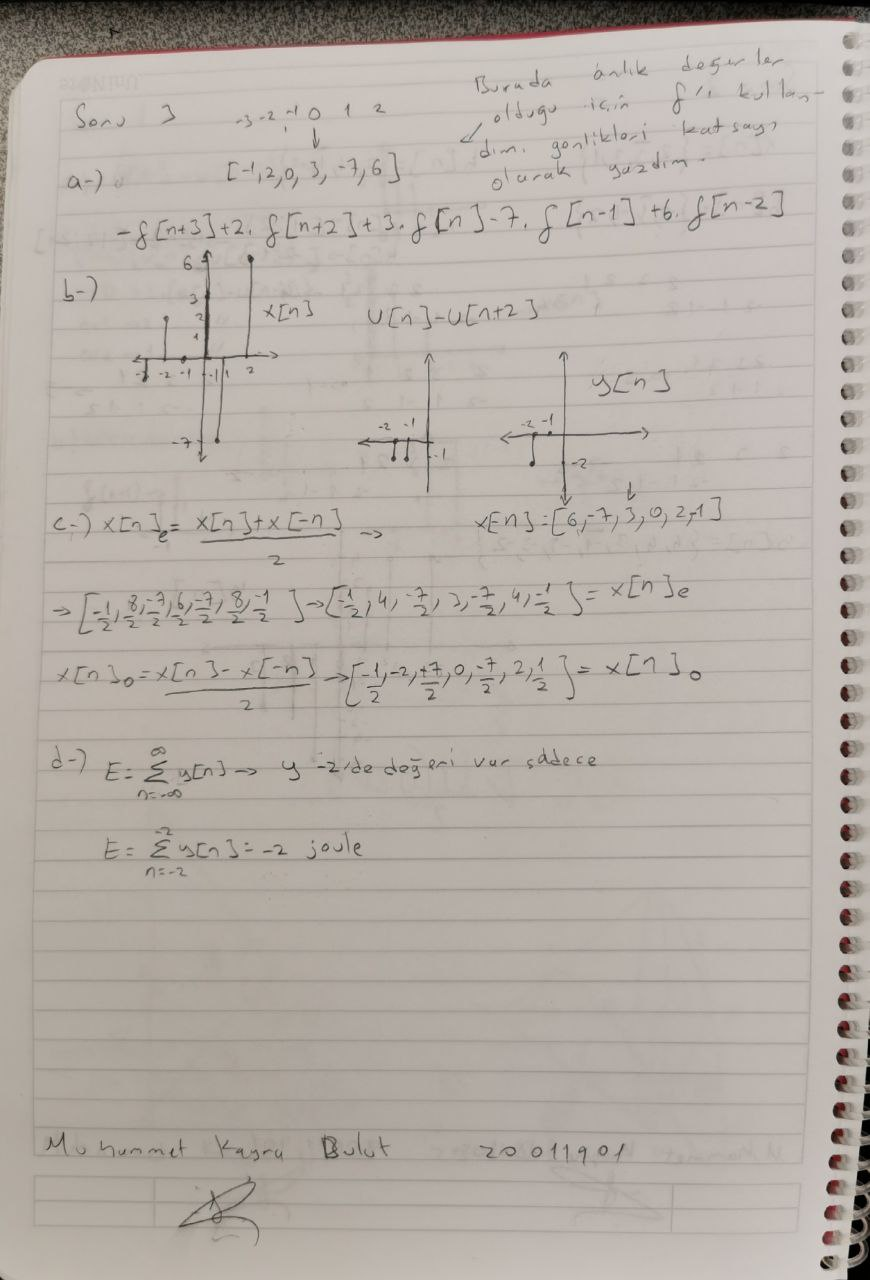 Soru 3
-3 -2 -1 0 1 2
Burada anlık değerler
olduğu için f'i kullan-
dım. genlikleri katsayı
olarak yazdım.
a-) [-1,2,0,3,-7,6]
-f[n+3]+2.f[n+2]+3.f[n]-7.f[n-1]+6.f[n-2]
b-)
6
3
2
1
x[n]
-3 -2 -1 -1 1 2
-7
U[n]-U[n+2]
-2 -1
-1
y[n]
-2 -1
-2
c-) x[n]e = (x[n]+x[-n])/2 → x[-n]=[6,-7,3,0,2,-1]
→[-1/2, 8/2, -7/2, 6/2, -7/2, 8/2, -1/2]→[-1/2, 4, -7/2, 3, -7/2, 4, -1/2]=x[n]e
x[n]o = (x[n]-x[-n])/2 →[-1/2, -2, +7/2, 0, -7/2, 2, 1/2]=x[n]o
d-) E= ∑ n=-∞ ∞ y[n] → y -2'de değeri var sadece
E= ∑ n=-2 -2 y[n]=-2 joule
Muhammet Kayra Bulut 20011901